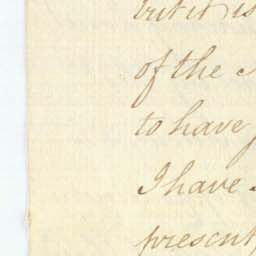 but it is
of the
to have
I have
present